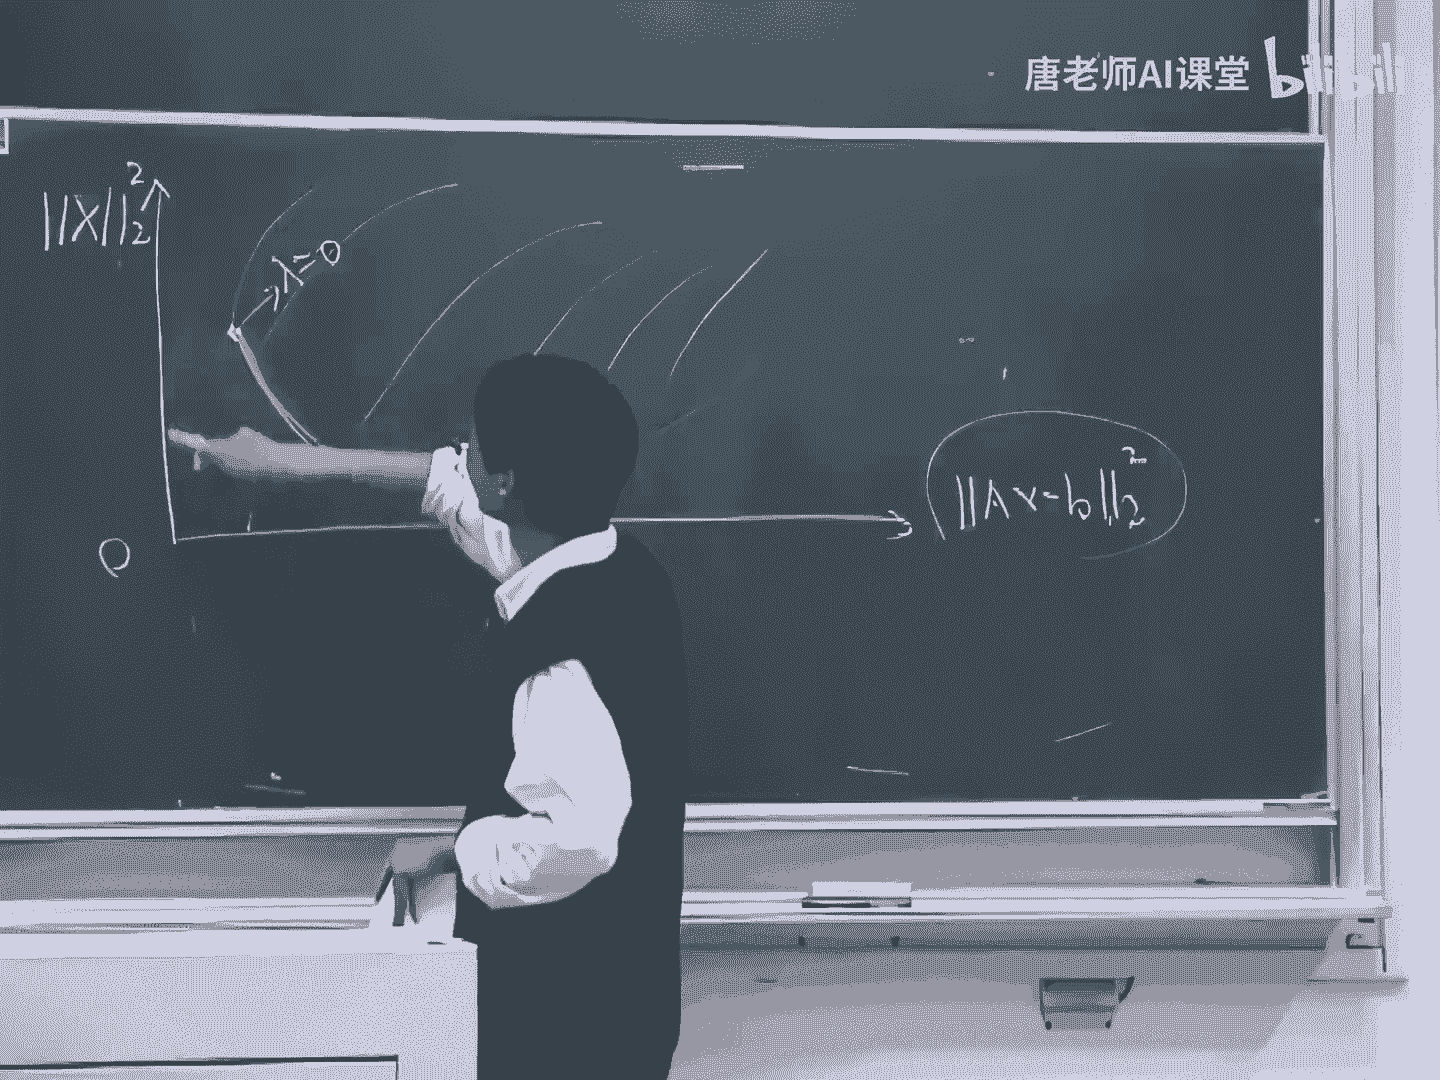 唐老师AI课堂 bilibili
||X||₂²
λ=0
||Ax-b||₂²
0